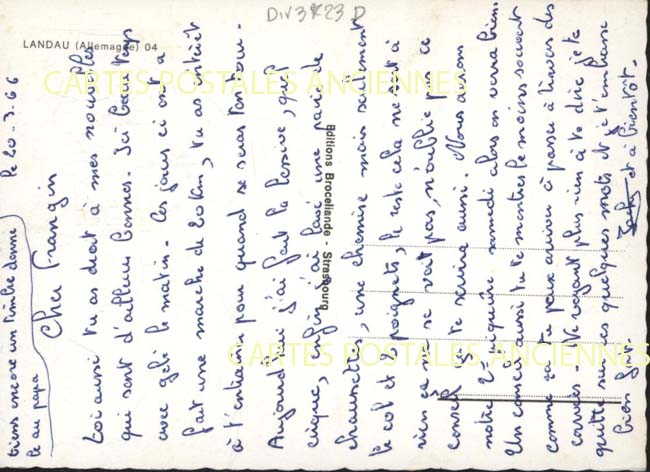 Div 3823 D
LANDAU (Allemagne) 04
CARTES POSTALES ANCIENNES
CARTES POSTALES ANCIENNES
Editions Broceliande - Strasbourg
tiens encore un timbre donne
le au papa
le 20-3-66
Cher Frangin
Toi aussi tu as droit à mes nouvelles
qui sont d'ailleurs bonnes. Ici beau temps
avec gelé le matin. Ces jours ci on a
fait une marche de 20 km, tu as intérêt
à t'entrainer pour quand se seras ton tour.
Aujourd'hui j'ai fait la lessive, qu'
cirque, enfin j'ai lavé une paire de
chaussettes, une chemise mais seulement
le col et 2 poignets, le reste cela ne sert à
rien ça ne se voit pas, n'oublie pas ce
conseil il te servira aussi. Nous aurons
notre 2è piqure samedi alors on verra bien.
Un conseil aussi tu te montres le moins souvent
comme ça tu peux arriver à passer à travers des
corvées. Ne voyant plus rien à te dire je te
quitte sur ces quelques mots et je t'embrasse
bien fort et à bientôt.